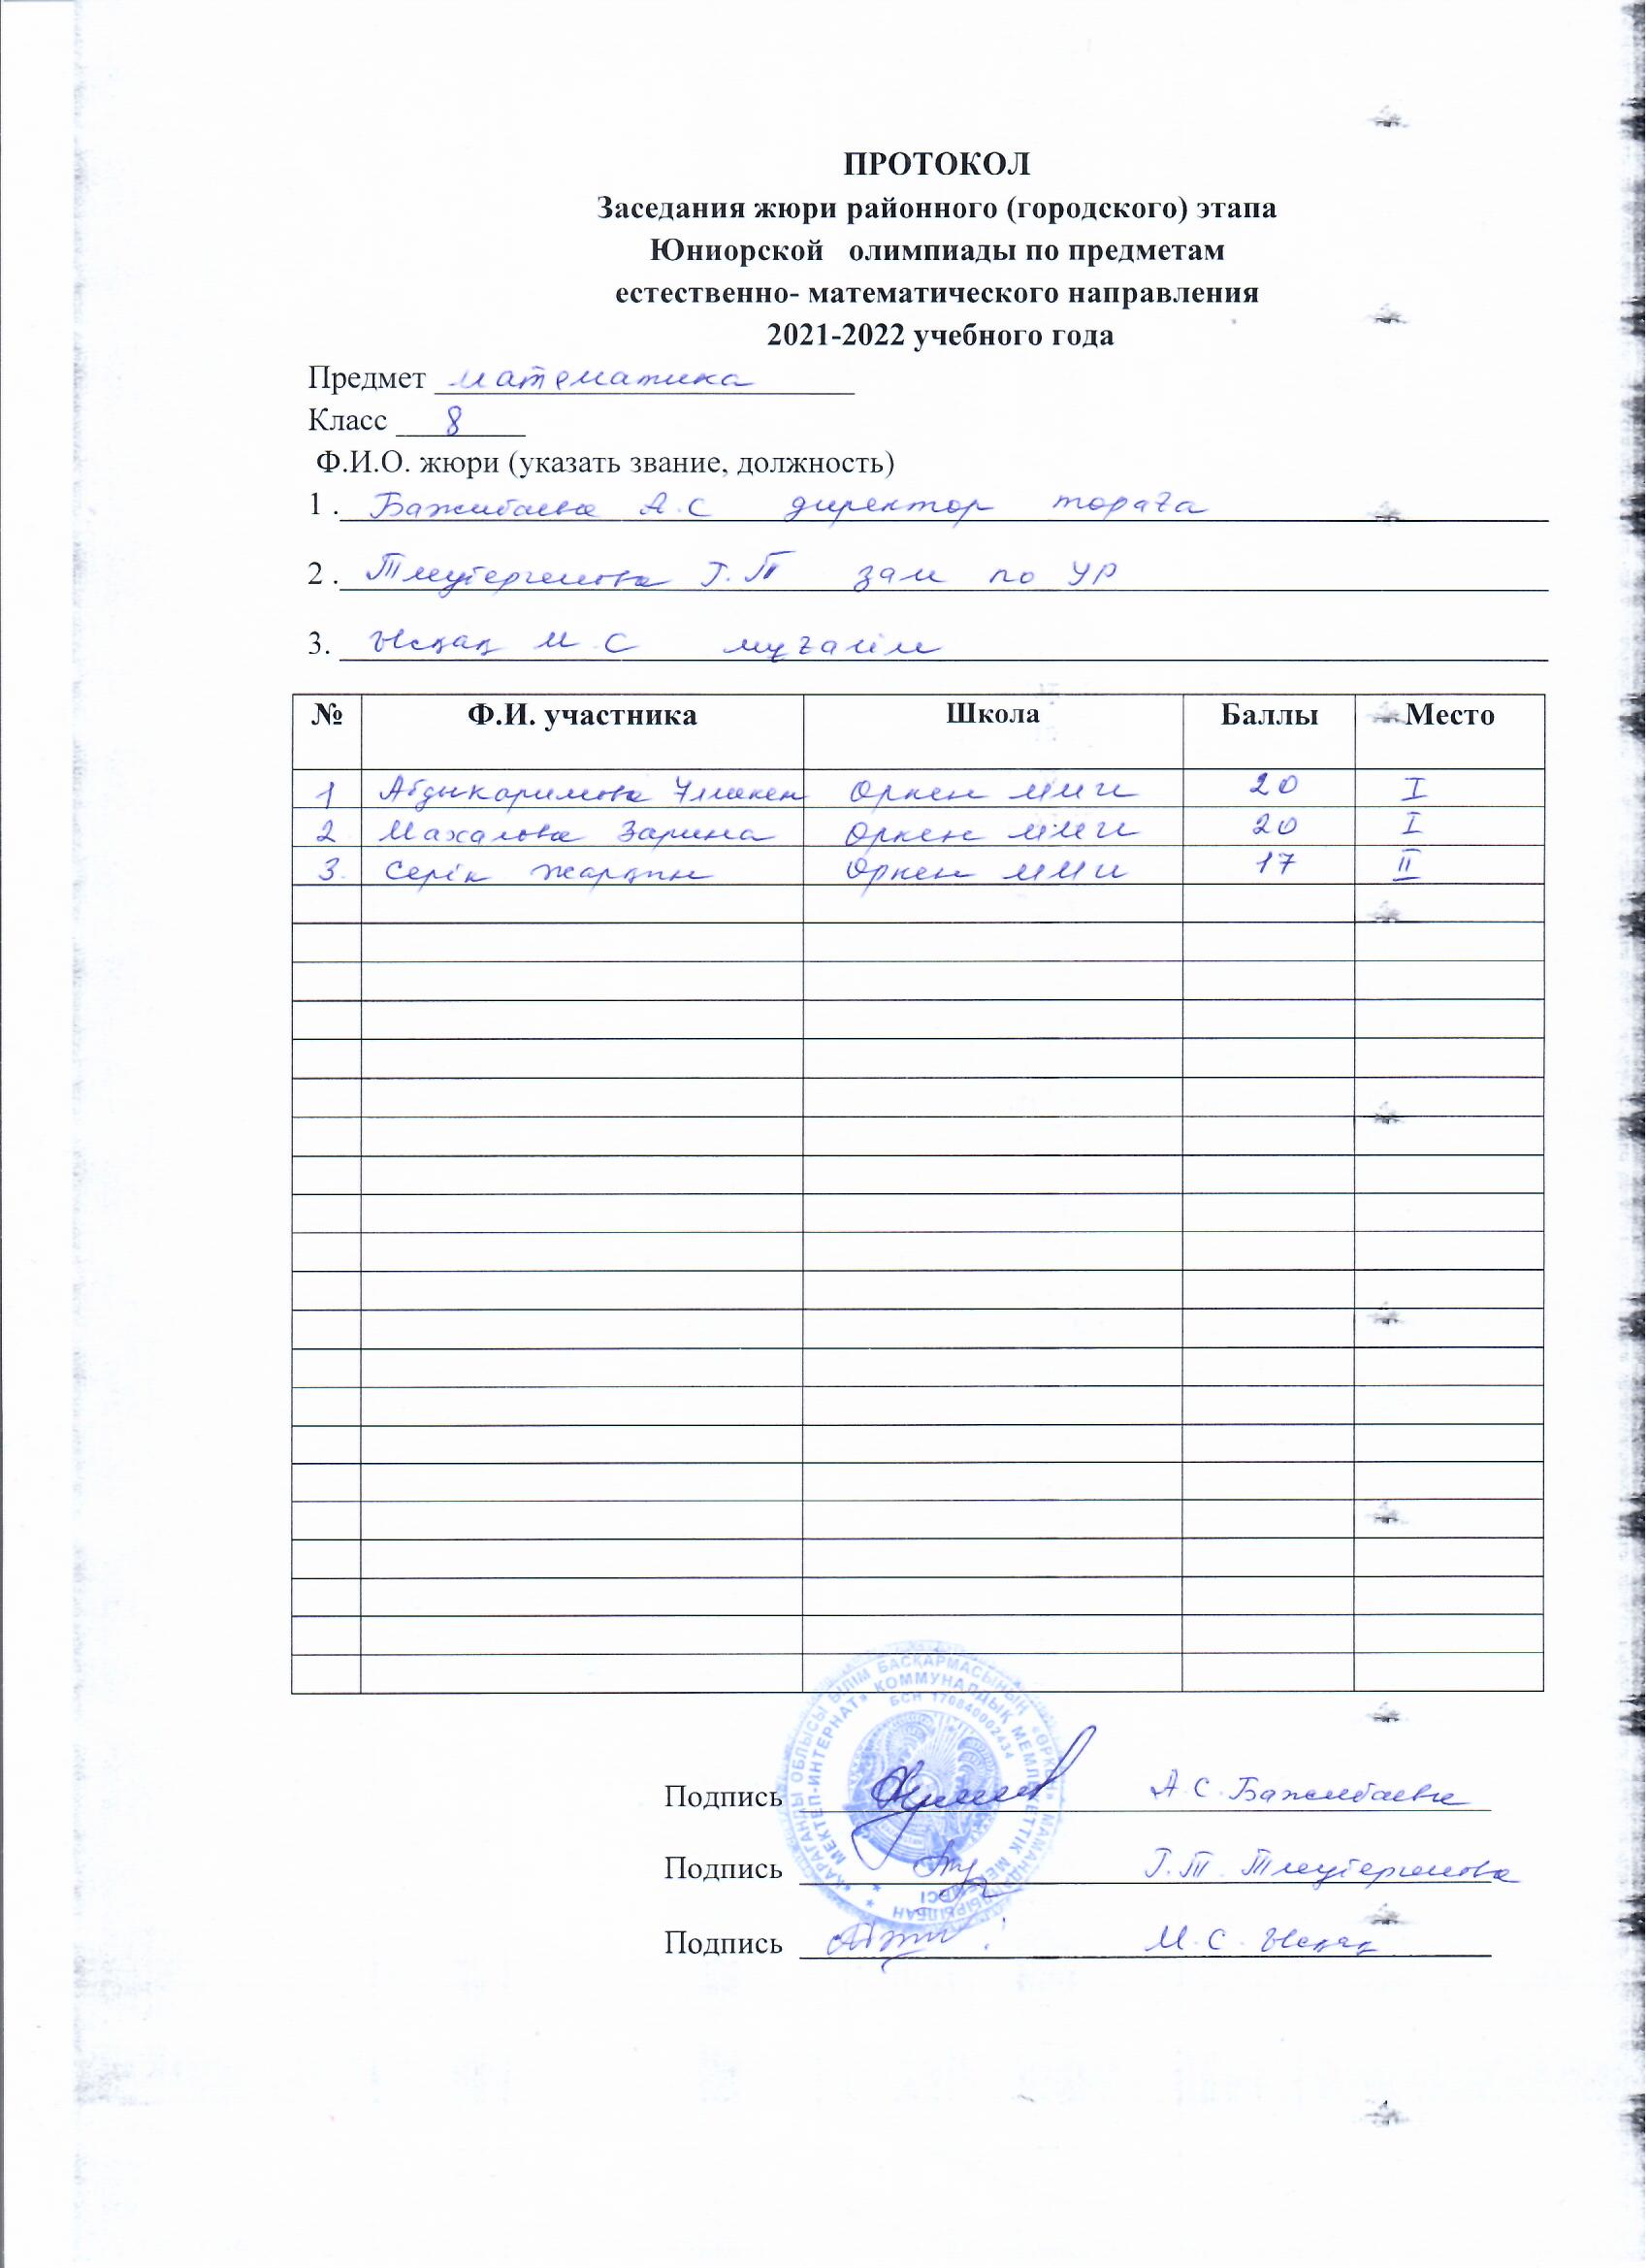 ПРОТОКОЛ
Заседания жюри районного (городского) этапа
Юниорской олимпиады по предметам
естественно- математического направления
2021-2022 учебного года
Предмет математика
Класс 8
Ф.И.О. жюри (указать звание, должность)
1 . Бажибаева А.С директор төраға
2 . Г.Т зам по УР
3. Ысқақ М С мұғалім
№ Ф.И. участника Школа Баллы Место
1 Абдикаримова Өркен ММИ 20 I
2 Махалова Зарина Өркен ММИ 20 I
3. Серік Жарқын Өркен ММИ 17 II
«ҚАРАҒАНДЫ ОБЛЫСЫ БІЛІМ БАСҚАРМАСЫНЫҢ «ӨРКЕН» МАМАНДАНДЫРЫЛҒАН
МЕКТЕП-ИНТЕРНАТ» КОММУНАЛДЫҚ МЕМЛЕКЕТТІК МЕКЕМЕСІ
БСН 170840002434
Подпись А.С. Бажибаева
Подпись Г.Т.
Подпись М.С. Ысқақ